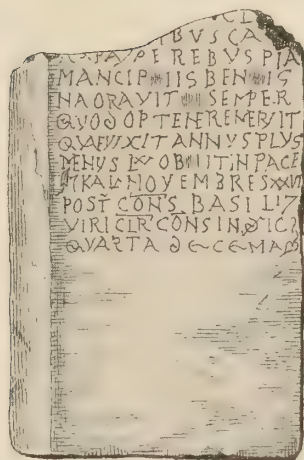 CL
IBVSCA
PAVPEREBVS PIA
MANCIP IIS BEN IS
NAORAVIT SEMPER
QVOD OPTENRENERVIT
QVAEVIXIT ANNVS PLVS
MENVS OBIIT IN PACE
KAL NOVEMBRES XXVI
POST CONS BASILI
VIRI CLR CONS INDIC
QVARTA DECEMA